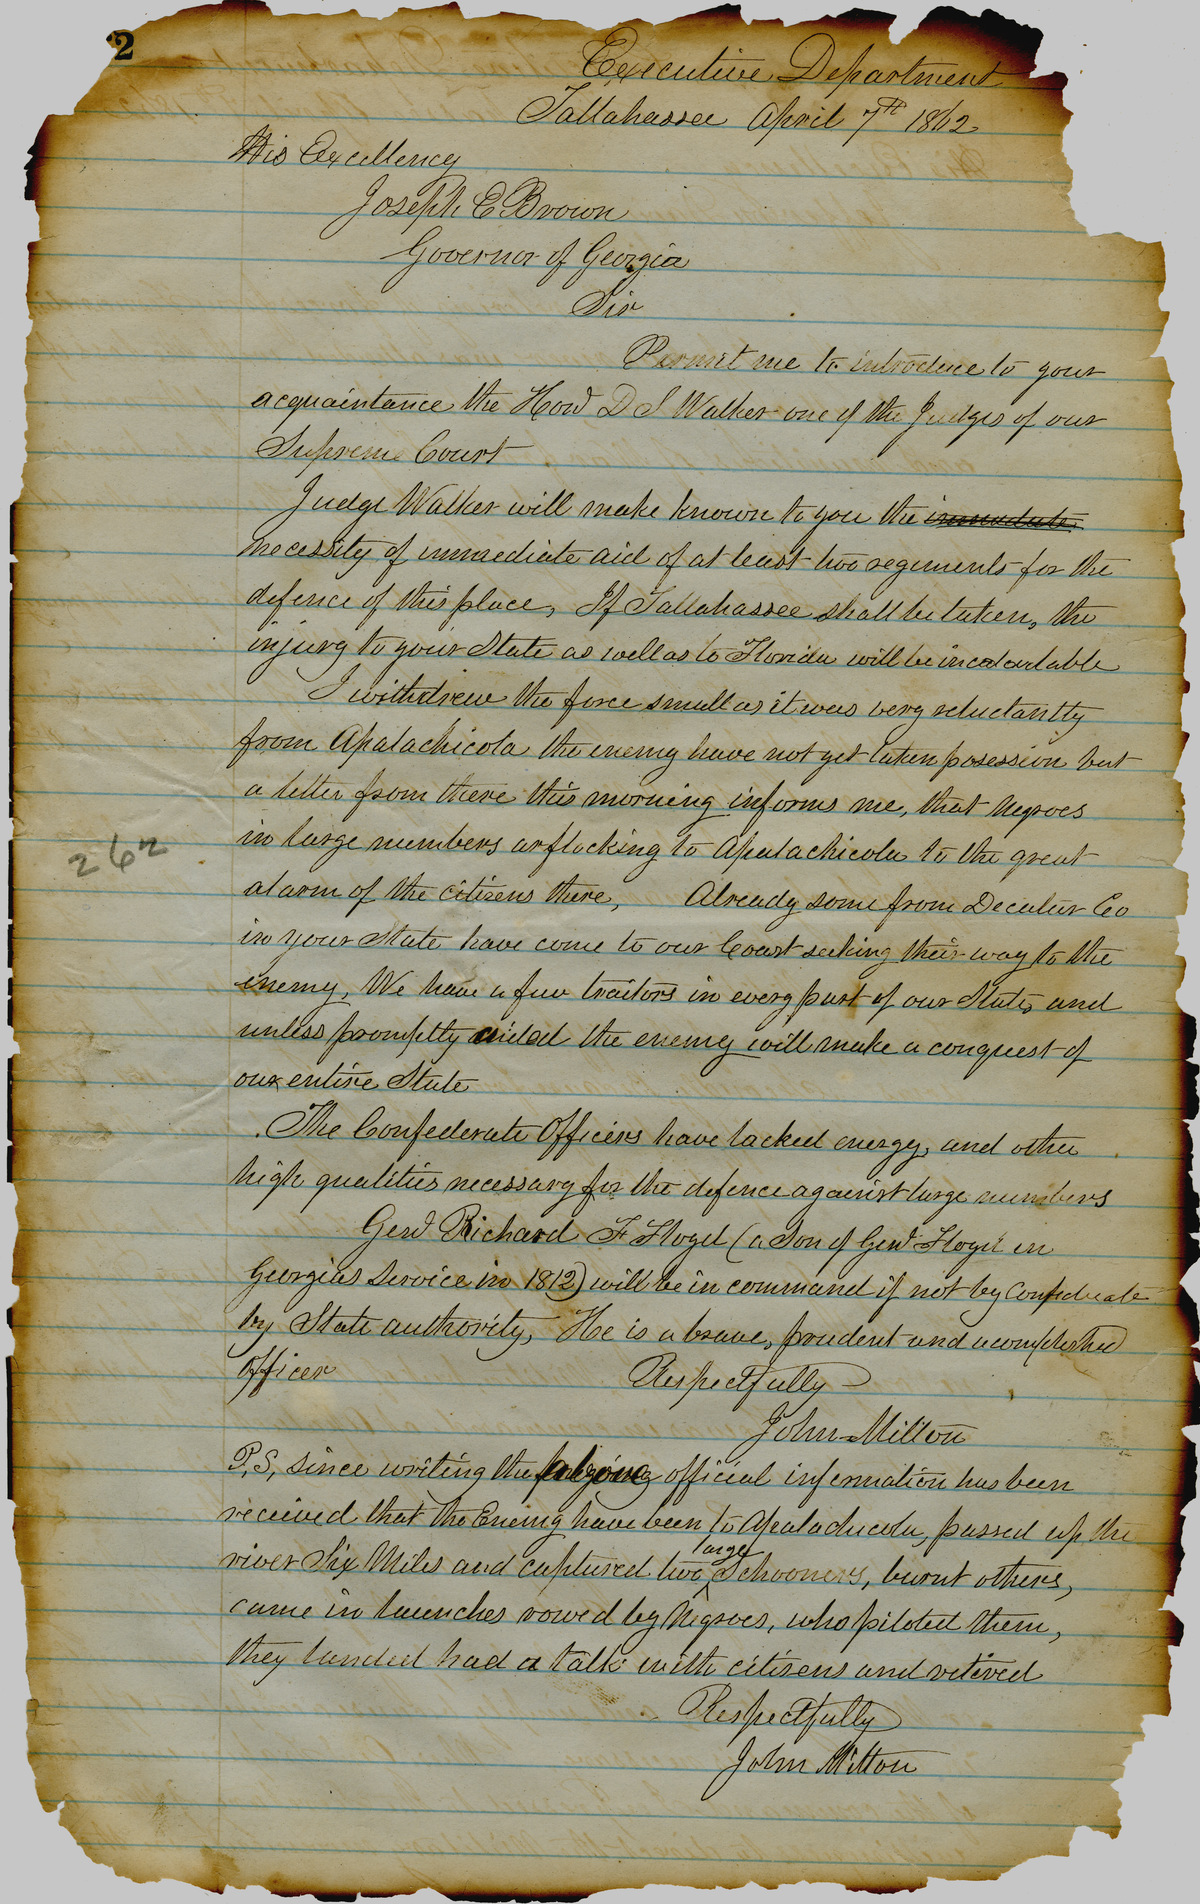 2
Executive Department
Tallahassee April 7th 1862
His Excellency
Joseph E Brown
Governor of Georgia
Sir
Permit me to introduce to your
acquaintance the Hon'l D S Walker one of the Judges of our
Supreme Court
Judge Walker will make known to you the immediate
necessity of immediate aid of at least two regiments for the
defence of this place, If Tallahassee shall be taken, the
injury to your State as well as to Florida will be incalculable
I withdrew the force small as it was very reluctantly
from Apalachicola the enemy have not yet taken posession but
a letter from there this morning informs me, that Negroes
in large numbers ar flocking to Apalachicola to the great
alarm of the citizens there, Already some from Decatur Co
in your State have come to our Coast seeking their way to the
enemy, We have a few traitors in every part of our State, and
unless promptly aided the enemy will make a conquest of
our entire State
262
The Confederate Officers have lacked energy, and other
high qualities necessary for the defence against large numbers
Gen'l Richard F Floyd (a Son of Gen'l Floyd in
Georgias Service in 1812) will be in command if not by Confederate
by State authority, He is a brave, prudent and acomplished
Officer
Respectfully
John Milton
P,S, since writing the foregoing official information has been
received that the Enemy have been to Apalachicola, passed up the
river Six Miles and captured two large Schooners, burnt others,
came in launches rowed by Negroes, who piloted them,
they landed had a talk with citizens and retired
Respectfully
John Milton